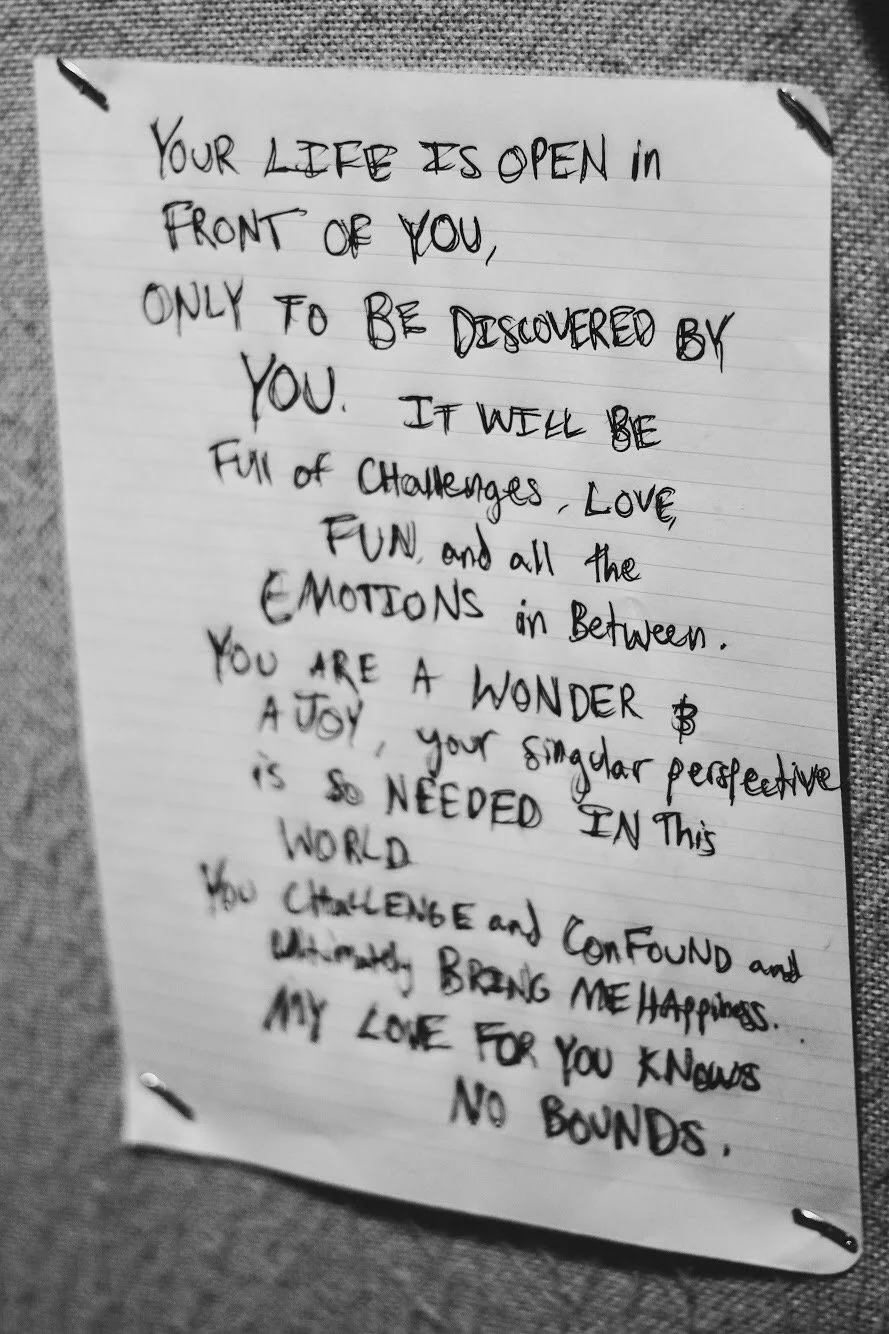 YOUR LIFE IS OPEN in
FRONT OF YOU,
ONLY TO BE DISCOVERED BY
YOU. IT WILL BE
Full of CHallenges, LOVE,
FUN, and all the
EMOTIONS in Between.
YOU ARE A WONDER &
A JOY, your singular perspective
is so NEEDED IN This
WORLD
You CHALLENGE and ConFOUND and
Ultimately BRING ME HAppiness.
MY LOVE FOR YOU KNOWS
NO BOUNDS.